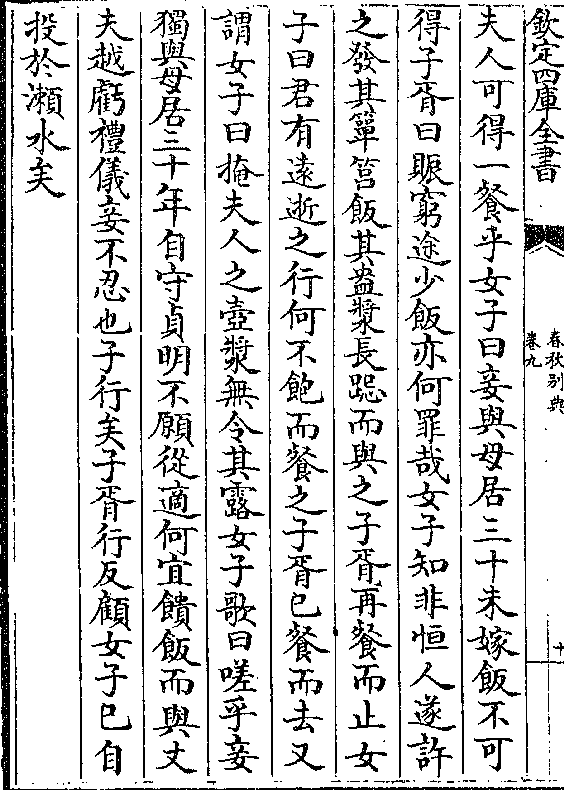 欽定四庫全書
春秋別典
卷九
十
夫人可得一餐乎女子曰妾與母居三十未嫁飯不可
得子胥曰賑窮途少飯亦何罪哉女子知非恒人遂許
之發其簞筥飯其盎漿長跽而與之子胥再餐而止女
子曰君有遠逝之行何不飽而餐之子胥已餐而去又
謂女子曰掩夫人之壺漿無令其露女子歌曰嗟乎妾
獨與母居三十年自守貞明不願從適何宜饋飯而與丈
夫越虧禮儀妾不忍也子行矣子胥行反顧女子已自
投於瀨水矣